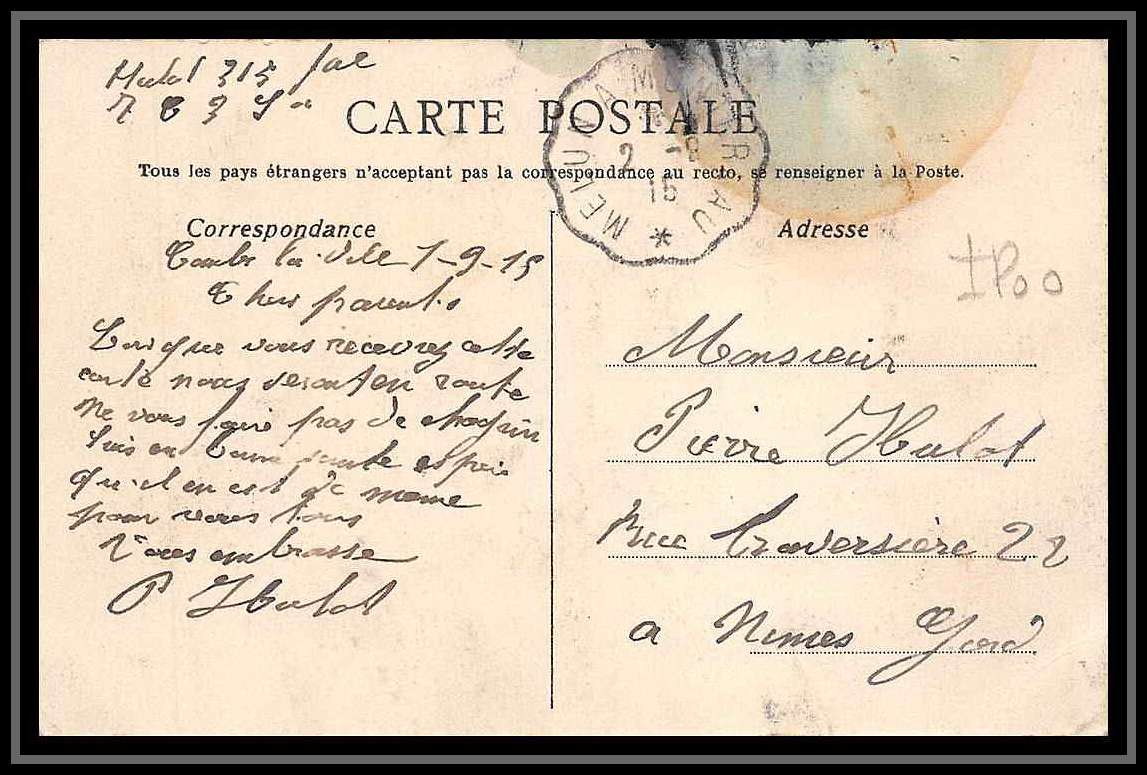 Hulot 315
CARTE POSTALE
Tous les pays étrangers n'acceptent pas la correspondance au recto, se renseigner à la Poste.
MELUN A MONTEREAU
2 -9
15
Correspondance
Combs la Ville 1-9-15
Chers parents
Lorsque vous recevrez cette
carte nous seront en route
Ne vous faire pas de chagrin
suis en bonne santé espère
qu'il en est de meme
pour vous tous
Vous embrasse
P Hulot
Adresse
Monsieur
Pierre Hulot
Rue Traversière 22
a Nimes Gard